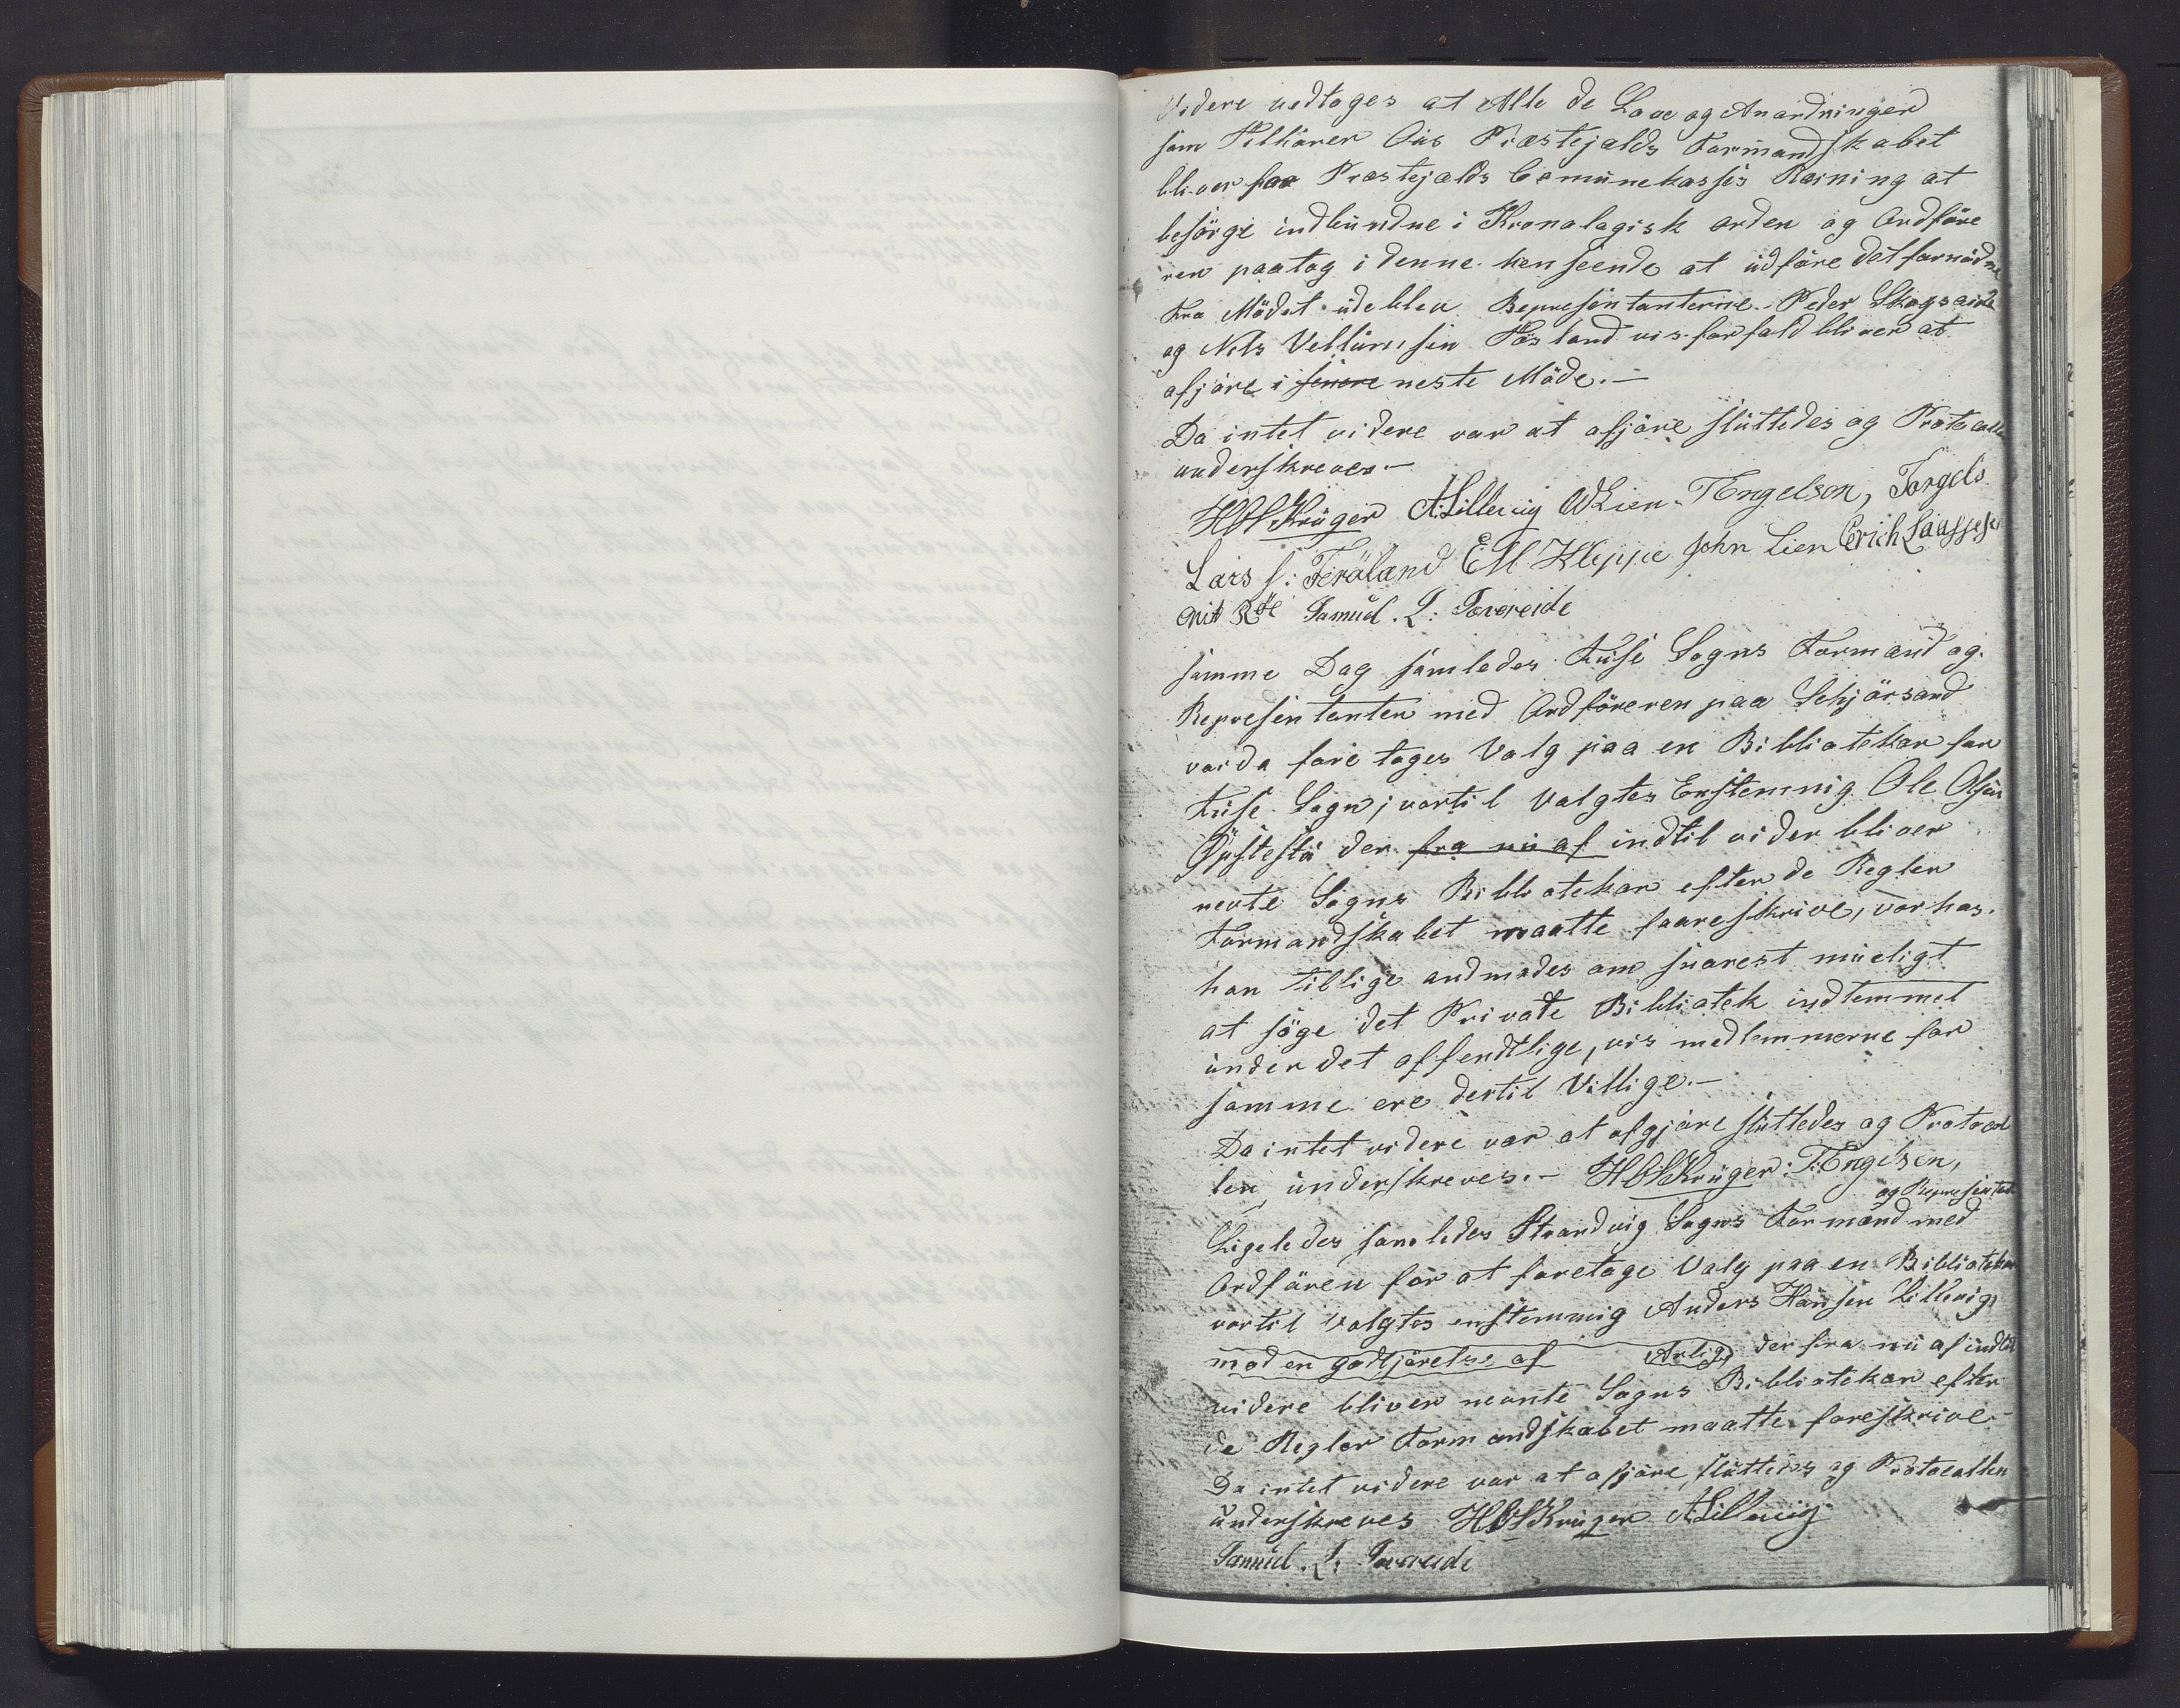 Videre vedtoges at Alle de Love og Anardninger
som Tilhörer Ous Præstejælds Formandskabet
bliver paa Præstejælds Comunekasses Ræining at
besörge indbundne i Kronalagisk orden og Ordföre
ren paatog i denne henseende at udföre det fornödne
Fra Mödet udeblev Representanterne Peder Skogseide
og Nils Villumsen vis forfald bliver at
afjöre i senere neste Möde.-
Da intet videre var at afjöre sluttedes og Protocolle
underskreves.-
HOSKrüger ALillevig WLien TEngelson, Torgels
Lars s: Teröland EM Kleppe John Lien Erich
Samuel. L: Tovereide
samme Dag samledes Fuse Sogns Formand og
Representanten med Ordföreren paa Schjörsand
vor da fore toges Valg paa en Bibliotekar for
Fuse Sogn, vortil Valgtes Enstemnig Ole Olsen
Opstestu der fra nu af indtil vider bliver
nevte Sogns Bibliotekar efter de Regler
Formandskabet maatte foareskrive, vorhos
han tillige andmodes om snarest mueligt
at söge det Private Bibliatek indlemmet
under det offendtlige, vis medlemmerne for
samme ere dertil Villige.-
Da intet videre var at afgjöre sluttedes og Protocol
len underskreves.- HOSKrüger: T:Engelsen,
og Representant
Ligeledes samledes Strandvig Sogns Formand med
Ordfören for at foretage Valg paa en Bibliotekar
vortil valgtes enstemmig Anders Hansen Lillevig
mod en godtjörelse af Arlig, der fra nu af indtil
videre bliver nevnte Sogns Bibliotekar efter
de Regler Formandskabet maatte foreskrive
Da intet videre var at afjöre, sluttedes og Protocollen
underskreves HOSKrüger ALillevig
Samuel. L: Tovereide